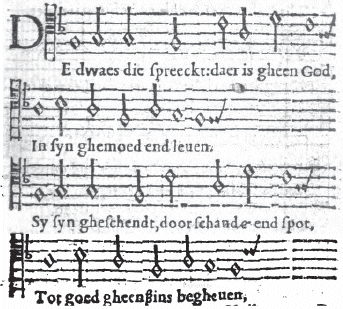 DE dwaes die spreeckt: daer is gheen God,
In syn ghemoed end leuen.
Sy syn gheschendt, door schande end spot,
Tot goed gheenßins begheuen,